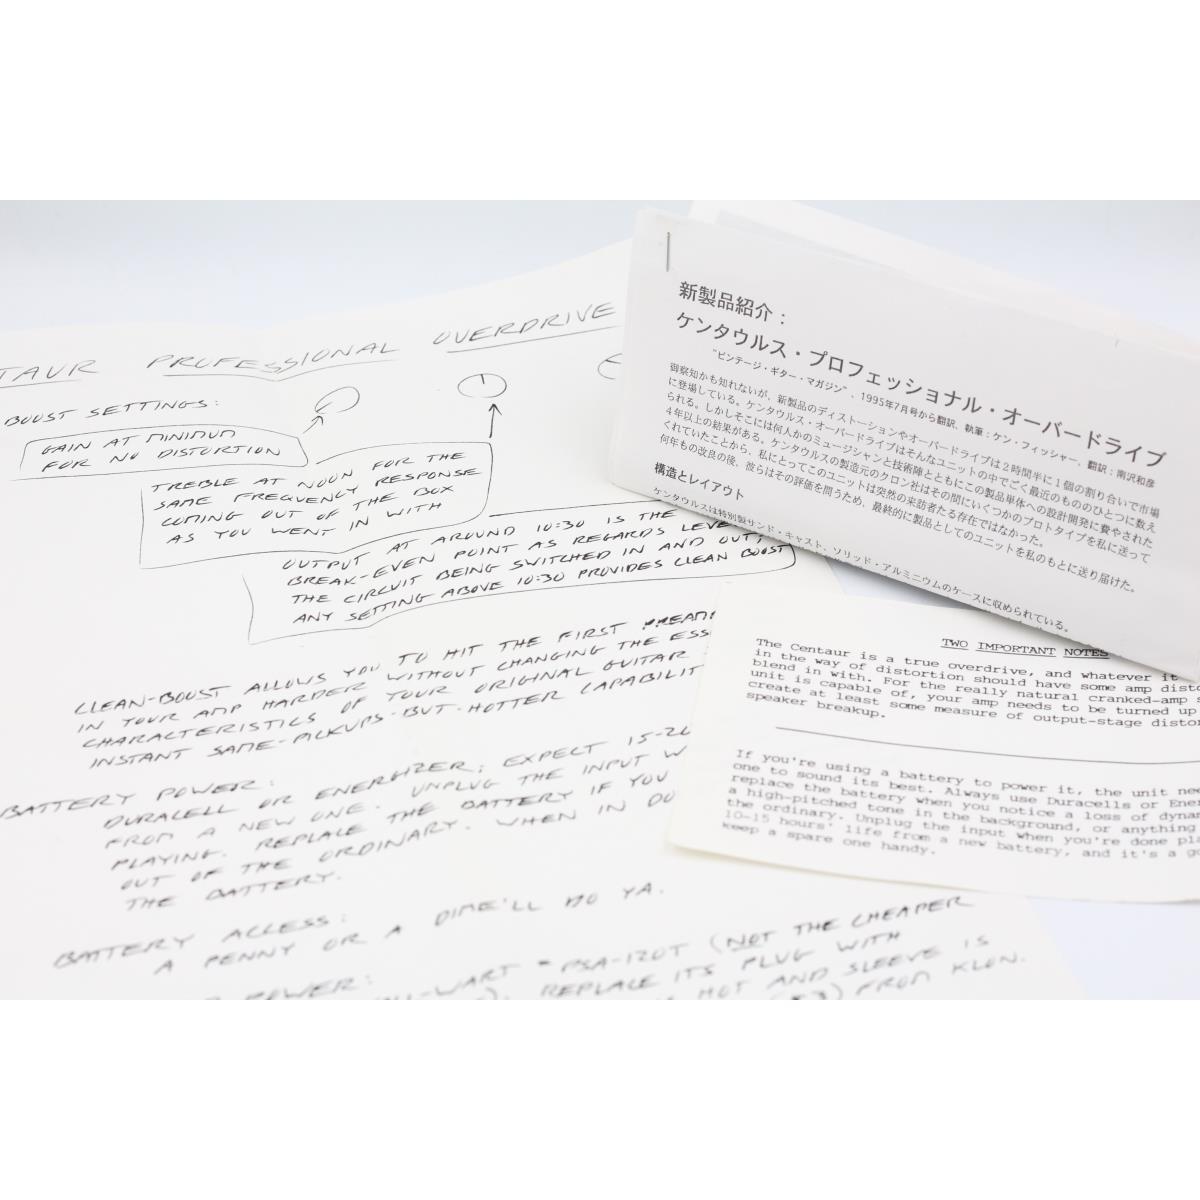 TAUR PROFESSIONAL OVERDRIVE
BOOST SETTINGS:
GAIN AT MINIMUM
FOR NO DISTORTION
TREBLE AT NOON FOR THE
SAME FREQUENCY RESPONSE
COMING OUT OF THE BOX
AS YOU WENT IN WITH
OUTPUT AT AROUND 10:30 IS THE
BREAK-EVEN POINT AS REGARDS LEVE
THE CIRCUIT BEING SWITCHED IN AND OUT;
ANY SETTING ABOVE 10:30 PROVIDES CLEAN BOOST
CLEAN-BOOST ALLOWS YOU TO HIT THE FIRST PREAM
IN YOUR AMP HARDER WITHOUT CHANGING THE ESS
CHARACTERISTICS OF YOUR ORIGINAL GUITAR
INSTANT SAME-PICKUPS-BUT-HOTTER CAPABILIT
BATTERY POWER:
DURACELL OR ENERGIZER; EXPECT 15-20
FROM A NEW ONE. UNPLUG THE INPUT W
PLAYING. REPLACE THE BATTERY IF YOU
OUT OF THE ORDINARY. WHEN IN DO
THE BATTERY.
BATTERY ACCESS:
A PENNY OR A DIME'LL DO YA.
POWER:
-WART = PSA-120T (NOT THE CHEAPER
REPLACE ITS PLUG WITH
HOT AND SLEEVE IS
FROM KLON.
新製品紹介：
ケンタウルス・プロフェッショナル・オーバードライブ
"ビンテージ・ギター・マガジン"、1995年7月号から翻訳、執筆：ケン・フィッシャー、翻訳：南沢和彦
御察知かも知れないが、新製品のディストーションやオーバードライブは2時間半に1個の割り合いで市場
に登場している。ケンタウルス・オーバードライブはそんなユニットの中でごく最近のもののひとつに数え
られる。しかしそこには何人かのミュージシャンと技術陣とともにこの製品単体への設計開発に費やされた
4年以上の結果がある。ケンタウルスの製造元のクロン社はその間にいくつかのプロトタイプを私に送って
くれていたことから、私にとってこのユニットは突然の来訪者たる存在ではなかった。
何年もの改良の後、彼らはその評価を問うため、最終的に製品としてのユニットを私のもとに送り届けた。
構造とレイアウト
ケンタウルスは特別製サンド・キャスト、ソリッド・アルミニウムのケースに収められている。
TWO IMPORTANT NOTES
The Centaur is a true overdrive, and whatever it
in the way of distortion should have some amp disto
blend in with. For the really natural cranked-amp s
unit is capable of, your amp needs to be turned up
create at least some measure of output-stage distor
speaker breakup.
If you're using a battery to power it, the unit nee
one to sound its best. Always use Duracells or Ener
replace the battery when you notice a loss of dynam
a high-pitched tone in the background, or anything
the ordinary. Unplug the input when you're done pla
10-15 hours' life from a new battery, and it's a go
keep a spare one handy.